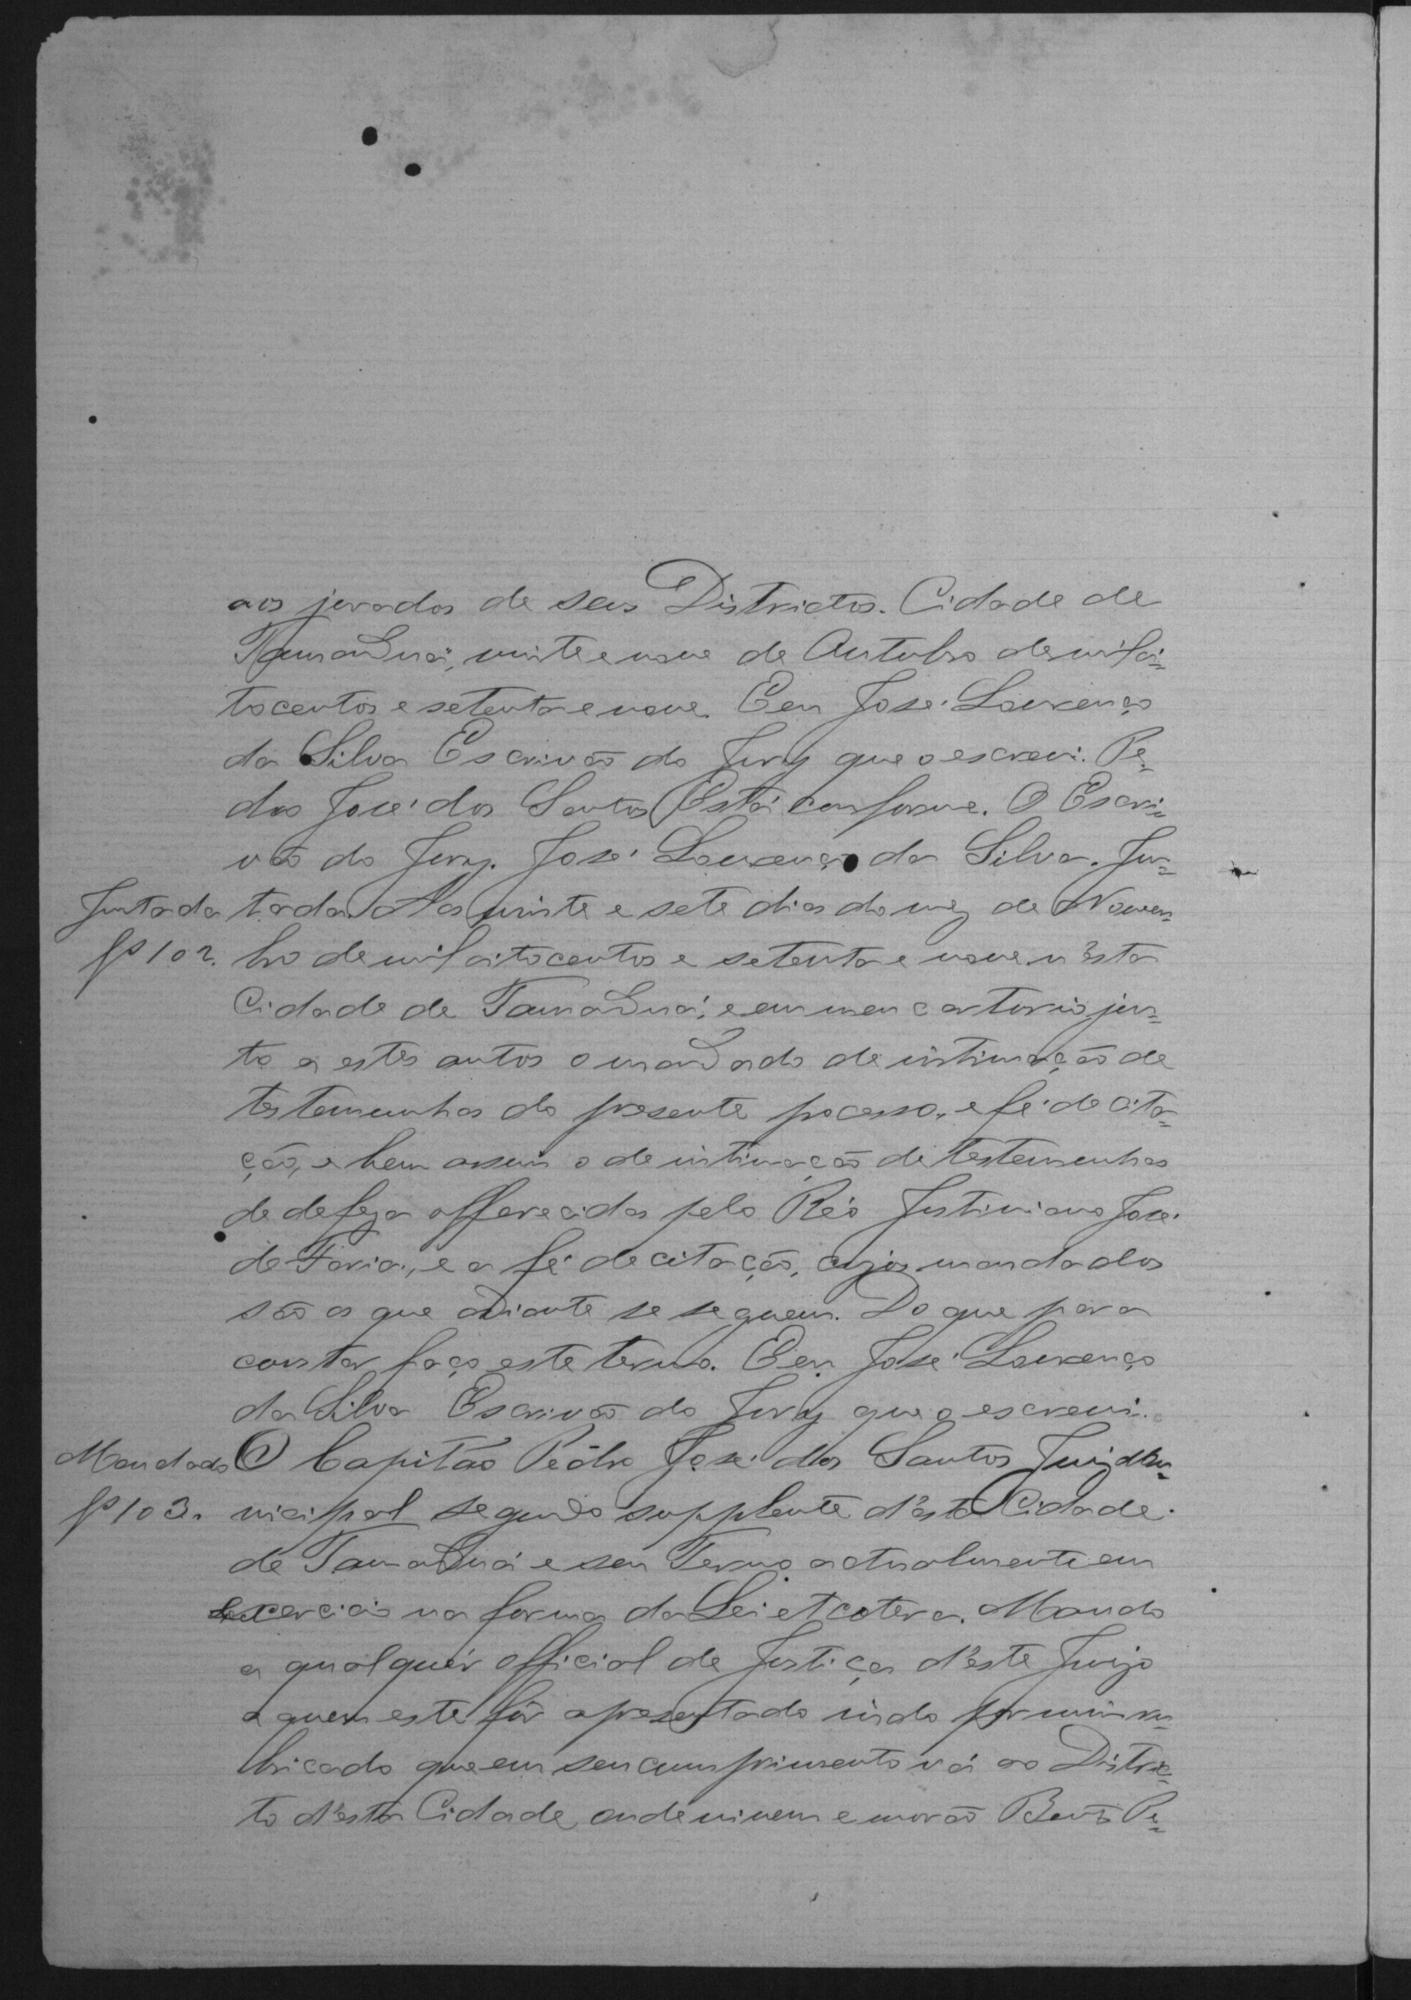 aos jurados de seus Districtos. Cidade de
Tamanduá, vinte e nove de Outubro de mil oi=
tocentos e setenta e nove. Eeu José Lourenço
da Silva Escrivão do Jury que o escrevi. Pe=
dro José dos Santos. Está conforme. O Escri=
vão do Jury. José Lourenço da Silva. Jun=
Juntada tada. Aos vinte e sete dias do mez de Novem=
fs 102. bro de mil oitocentos e setenta e nove n'esta
Cidade de Tamanduá, e em meu cartorio jun=
to a estes autos o mandado de intimação de
testemunhas do presente pocesso, e fé de cita=
ção, e bem assim o de intimação de testemunhas
de defeza offerecidas pelo Réo Justiniano José
de Faria, e a fé de citação, cujos mandados
são os que adiante se seguem. Do que para
constar faço este termo. Eeu José Lourenço
da Silva Escrivão do Jury que o escrevi.
Mandado O Capitão Pedro José dos Santos Juiz Mu=
fs 103. nicipal segundo supplente d'esta Cidade
de Tamanduá e seu Termo actualmente em
exercicio na forma da Lei etcetera. Mando
a qualquér official de Justiça d'este Juizo
a quem este fôr apresentado indo por mim ru=
bricado que em seu cumprimento vá ao Distric=
to d'esta Cidade, onde vivem e morão Bento Pe=